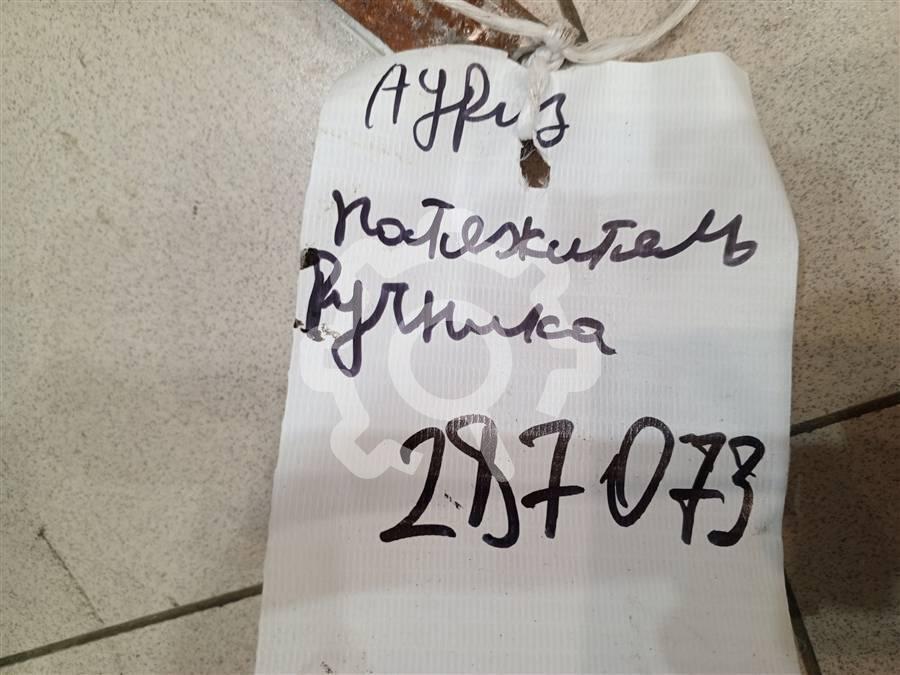 АУРиз
Натяжитель
Ручника
287073